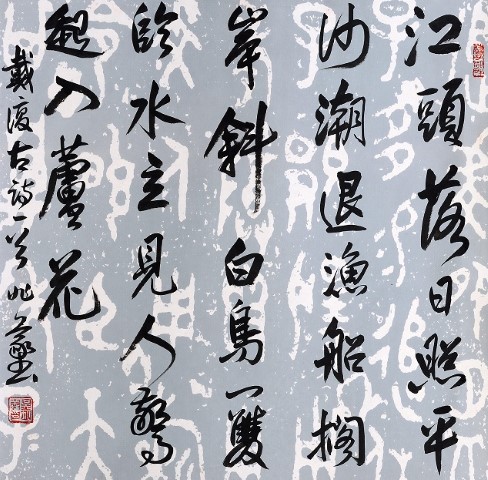 江頭落日照平
沙潮退漁船擱
岸斜白鳥一雙
臨水立見人驚
起入蘆花
戴復古詩一首